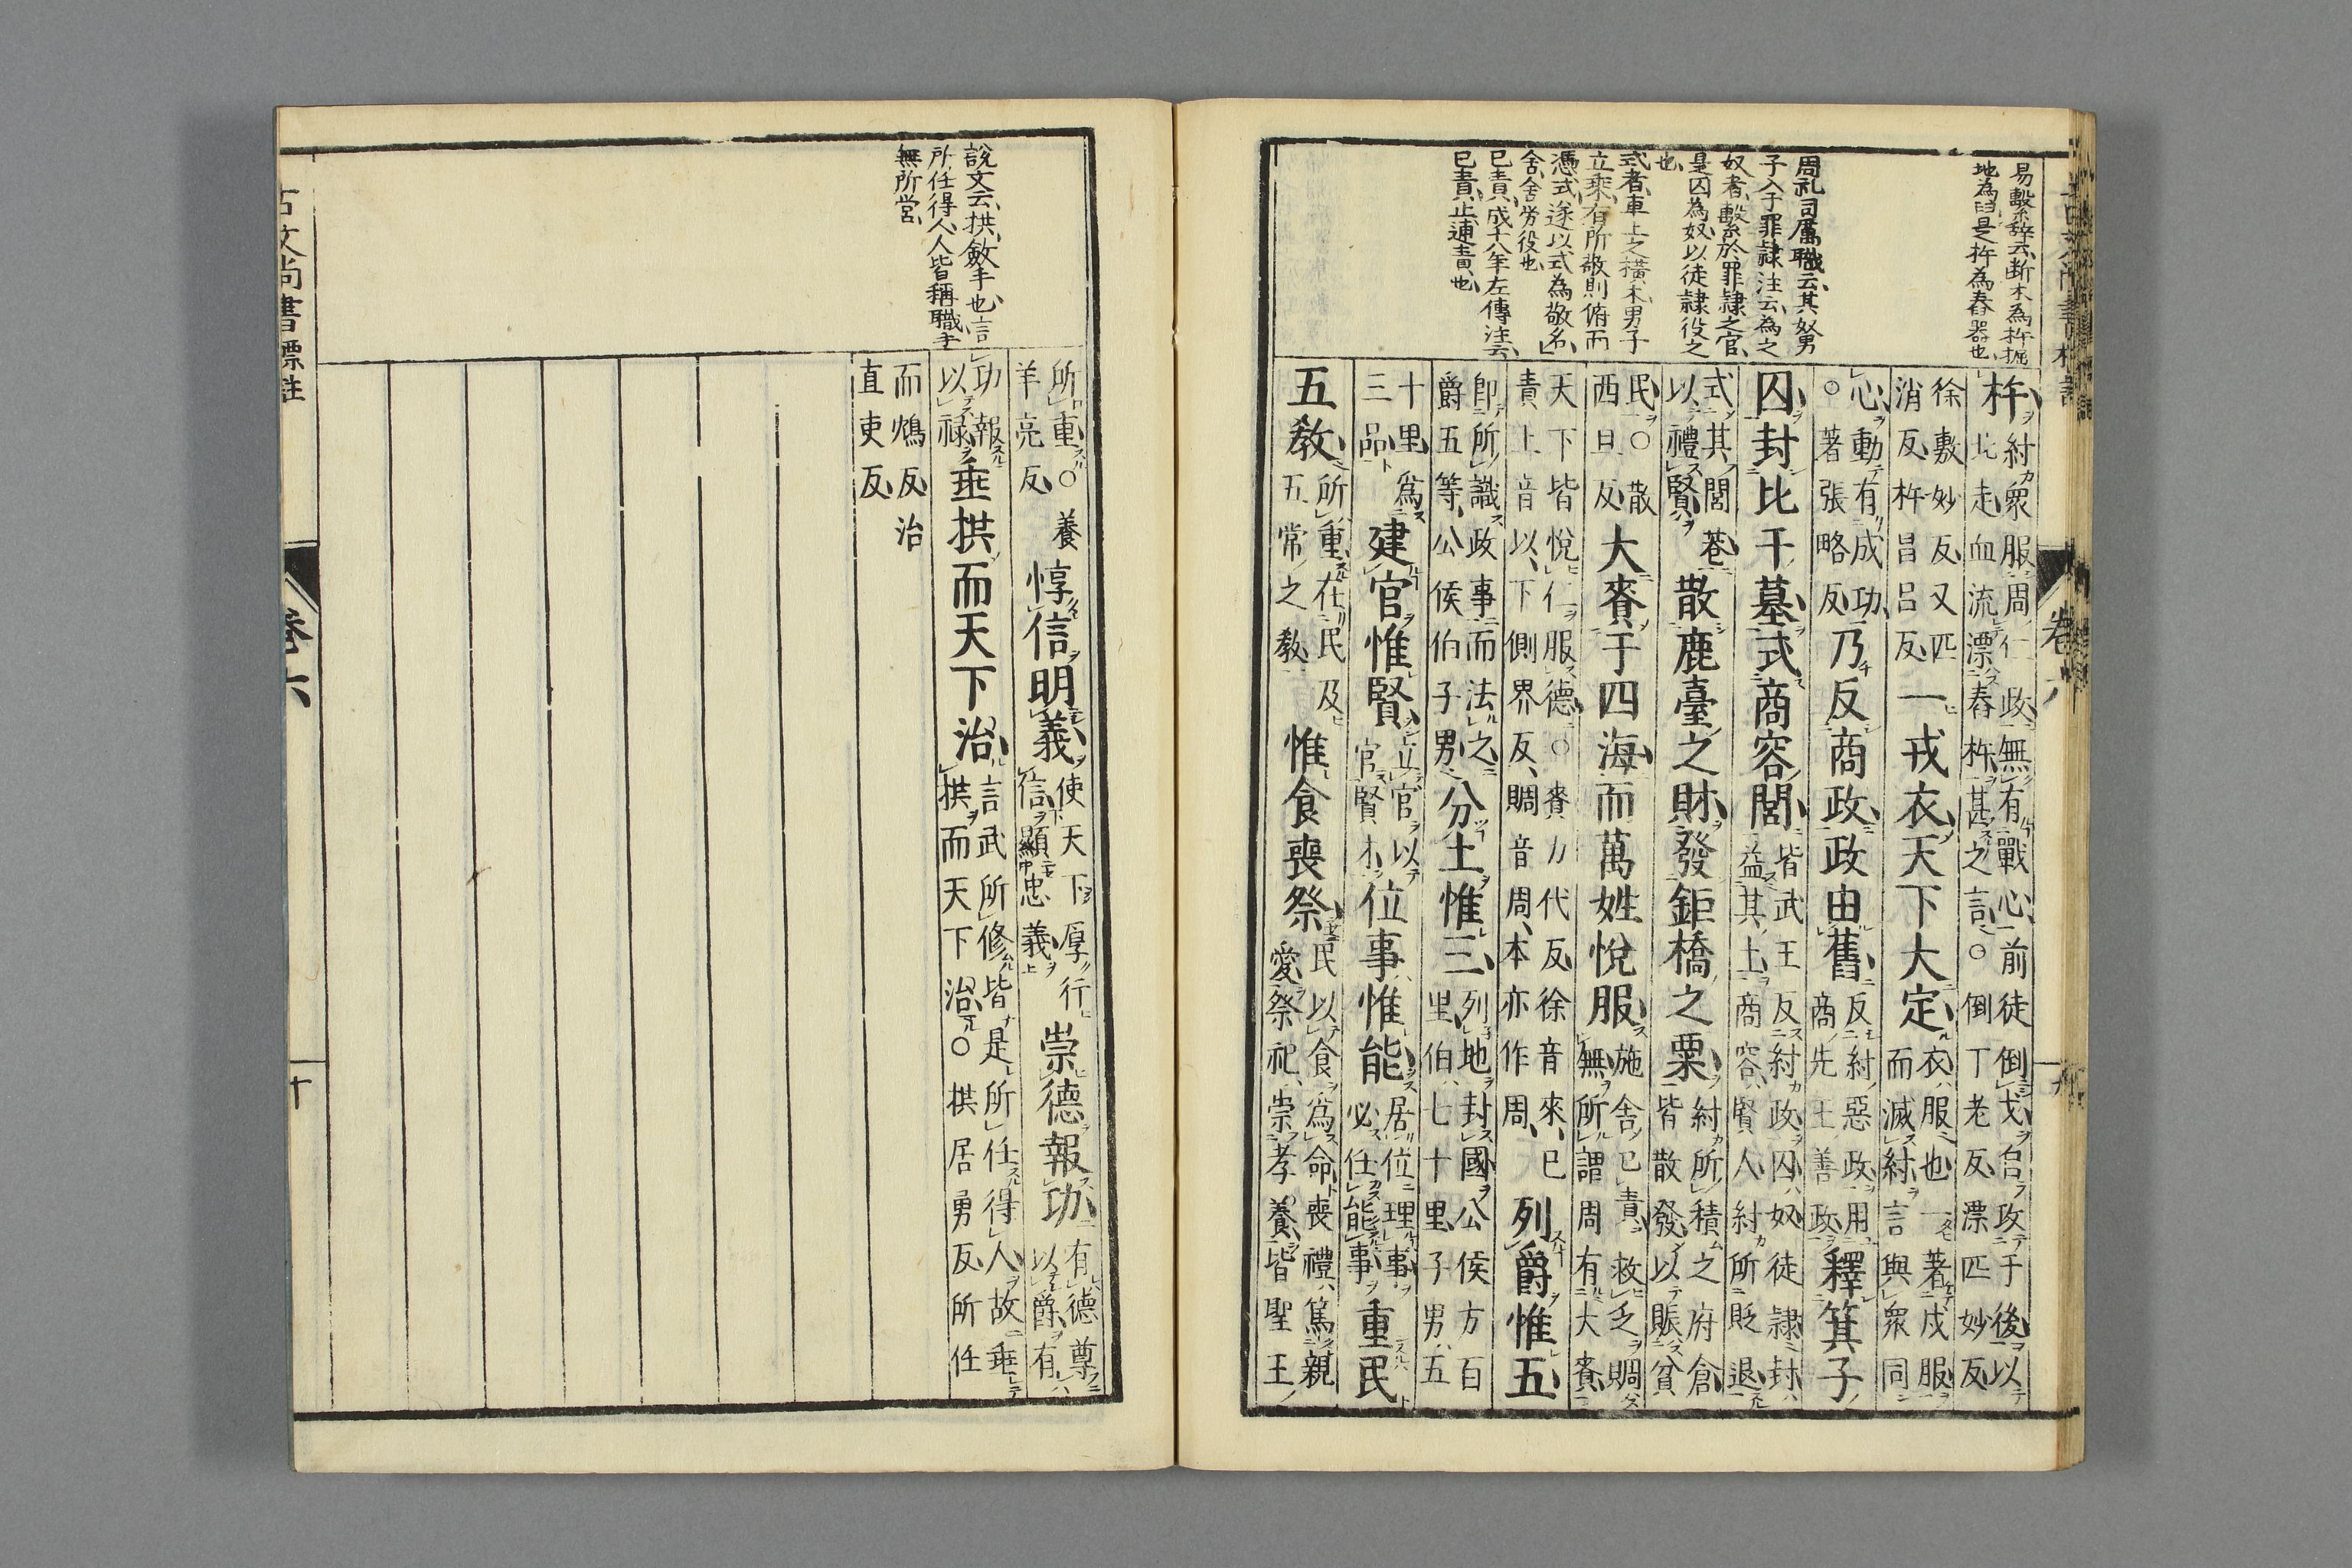 易繫辭云断木為杵掘
地為臼是杵為舂器也
周礼司厲職云其奴男
子入于罪隷注云為之
奴者繫於罪隷之官
是囚為奴以徒隷役之
也
式者車上之横木男子
立乗有所敬則俯而
憑式遂以式為敬名
舍舍労役也
已責成十八年左傳注云
已責止逋責也
杵紂衆服周仁政無有戰心前徒倒戈自攻于後以北走血流漂舂杵甚之言○倒丁老反漂匹妙反
徐敷妙反又匹消反杵昌呂反一戎衣天下大定衣服也一著戎服而滅紂言與衆同
心動有成功○著張略反乃反商政政由舊反紂惡政用商先王善政釋箕子
囚封比干墓式商容閭皆武王反紂政囚奴徒隷封益其土商容賢人紂所貶退
式其閭巷以禮賢散鹿臺之財發鉅橋之粟紂所積之府倉皆散發以賑貧
民○散西旦反大賚于四海而萬姓悅服施舍已責救乏賙無所謂周有大賚
天下皆悅仁服德○賚力代反徐音來已責上音以下側界反賙音周本亦作周列爵惟五
即所識政事而法之爵五等公侯伯子男分土惟三列地封國公侯方百里伯七十里子男五
十里爲三品建官惟賢立官以官賢才位事惟能居位理事必任能事重民
五敎所重在民及五常之敎惟食喪祭民以食爲命喪禮篤親愛祭祀崇孝養皆聖王
說文云拱斂手也言
所任得人人皆稱職手
無所営
所重○養羊亮反惇信明義使天下厚行信顯忠義崇德報功有德尊以爵有
功報以祿垂拱而天下治言武所修皆是所任得人故垂拱而天下治○拱居勇反所任
而鴆反治直吏反
古文尚書標註
卷六
十